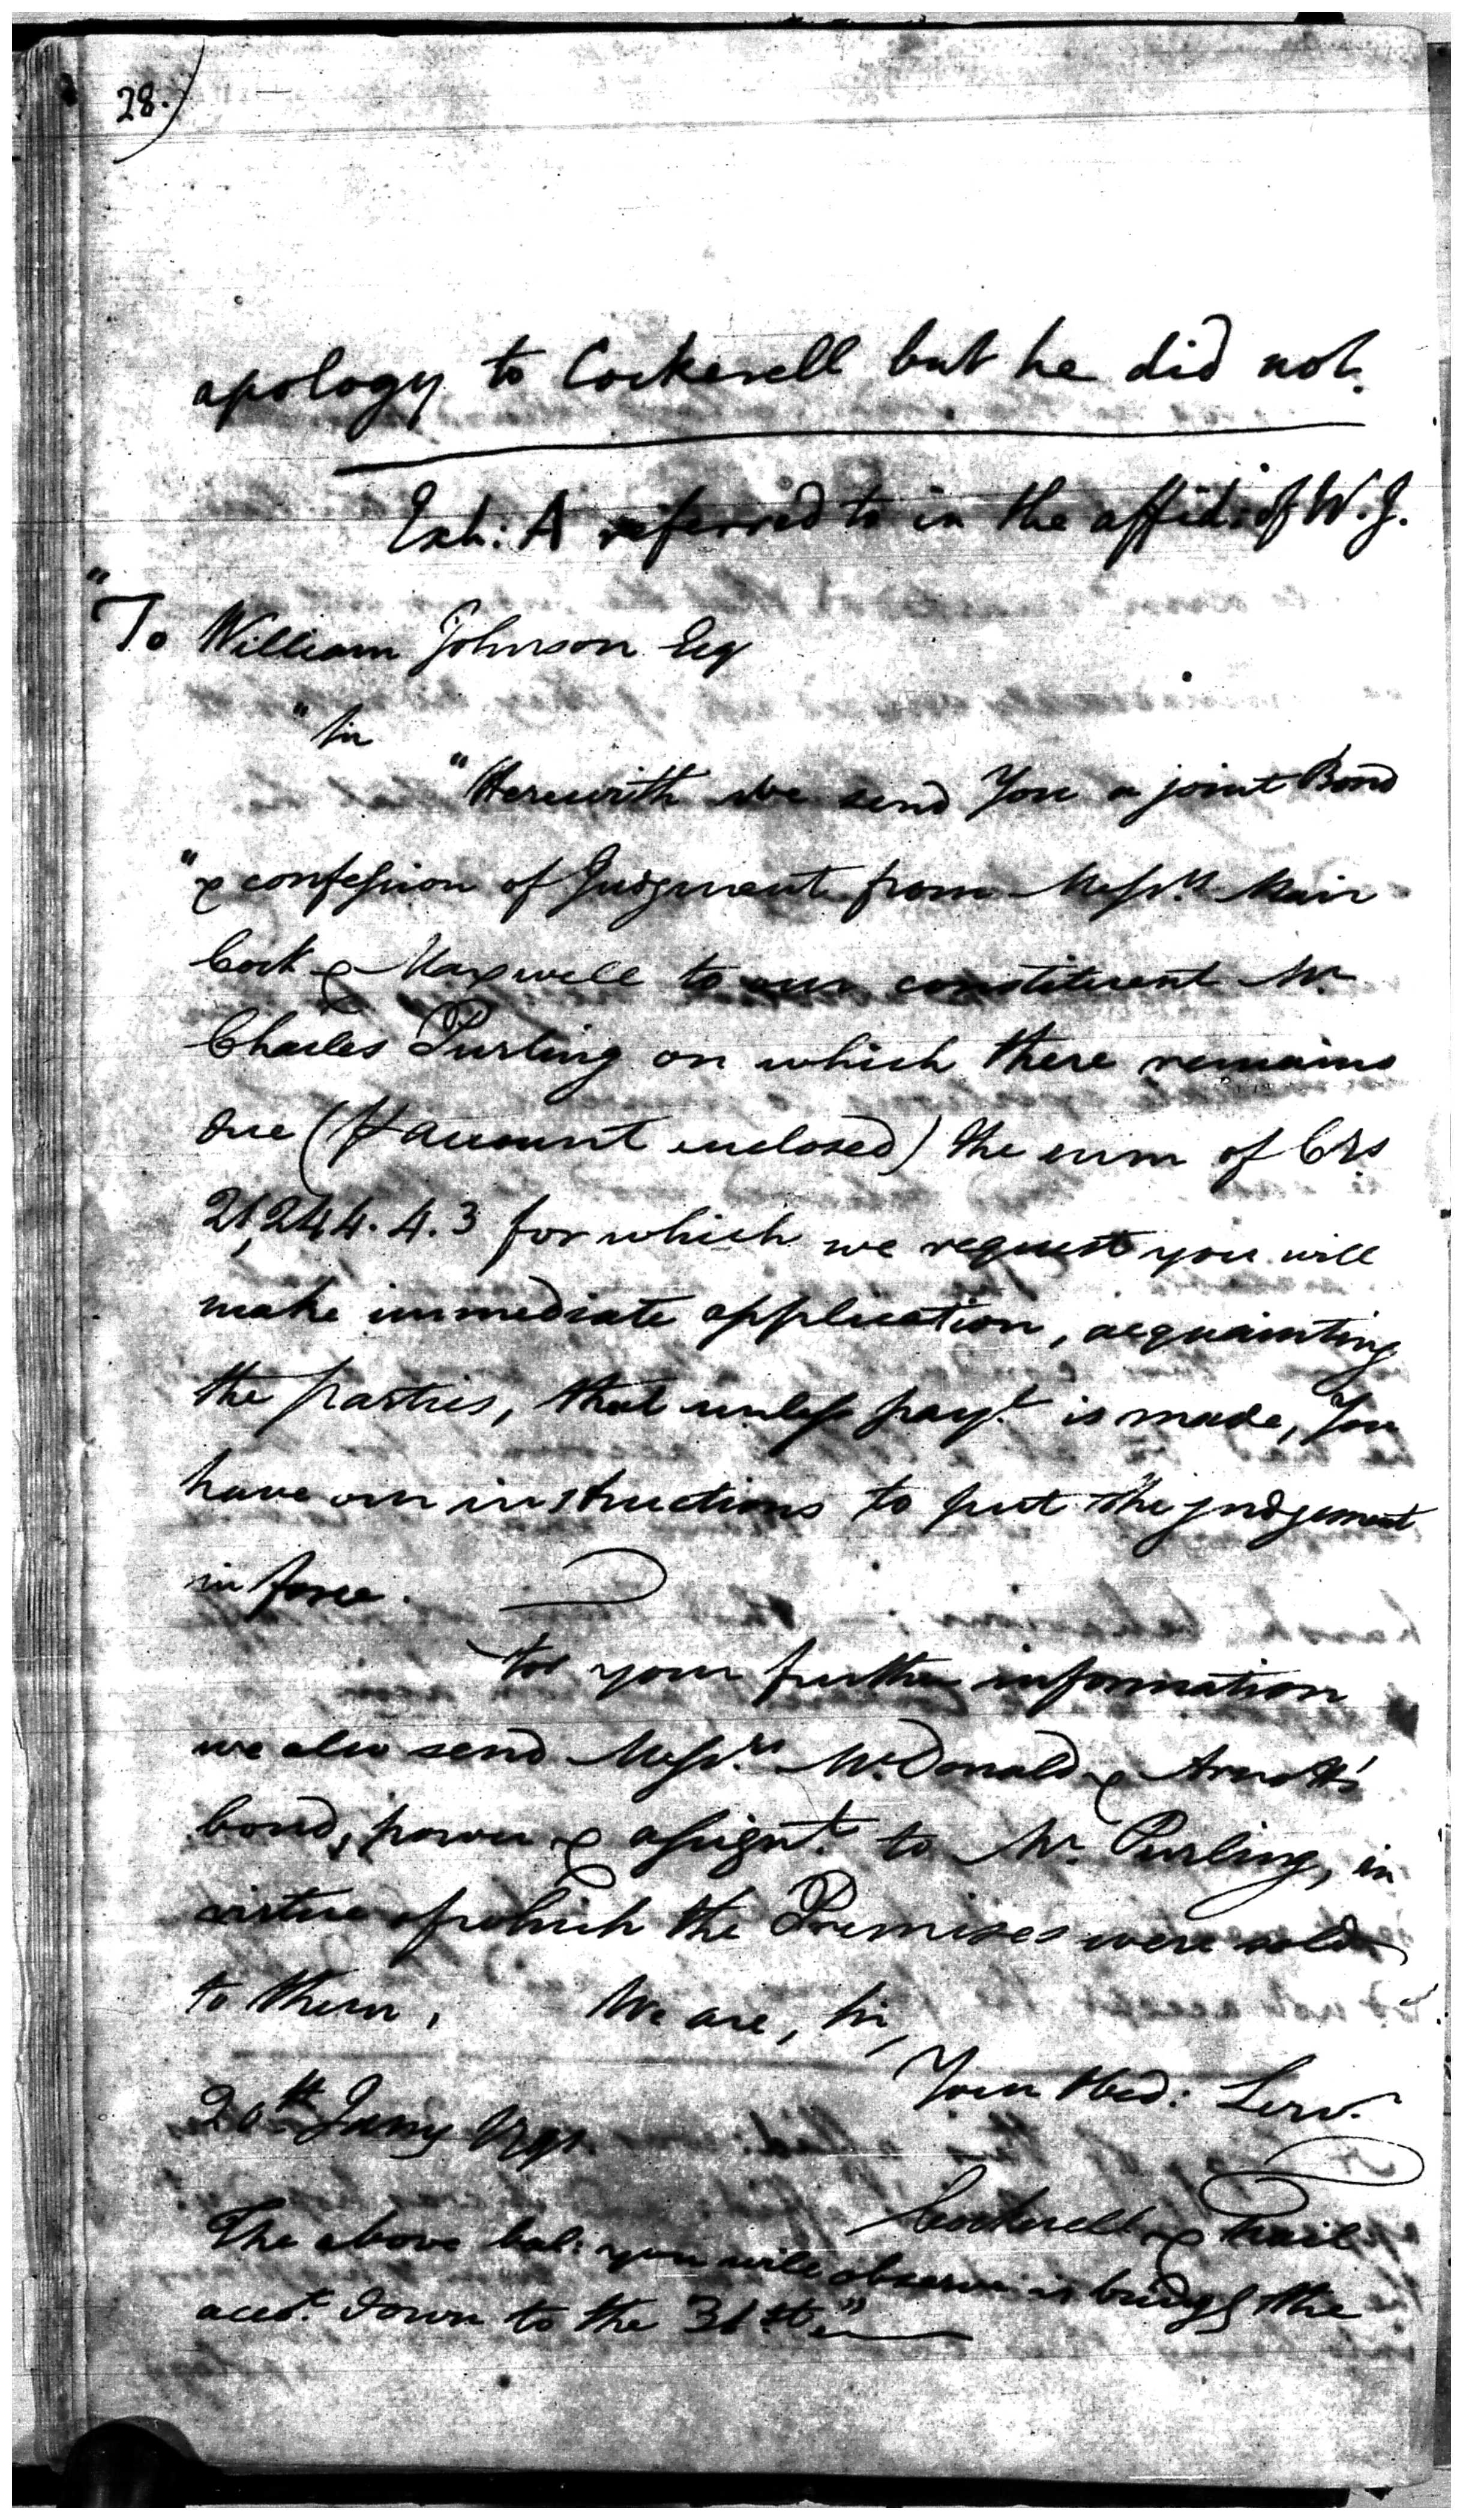 28.)
apology to Cockerell but he did not.
Exh: A referred to in the affid: of W. J.
"To William Johnson Esq
"Sir
"Herewith we send You a joint Bond
"& confession of Judgment from Messrs. Mair
Cock & Maxwell to our constituent Mr
Charles Purling on which there remains
due (P account enclosed) the sum of CRs
21,244.4.3 for which we request you will
make immediate application, acquainting
the parties, that unless payt. is made, You
have our instructions to put the judgement
in force.
For your further information
we also send Messrs. McDonald & Arnott's
bond, power & assignt. to Mr. Purling, in
virtue of which the Premises were sold
to them. We are, Sir,
Your Obed: Serv.
20th Jany
Cockerell & Trail
The above bal: you will observe is bringg the
acct. down to the 31st."